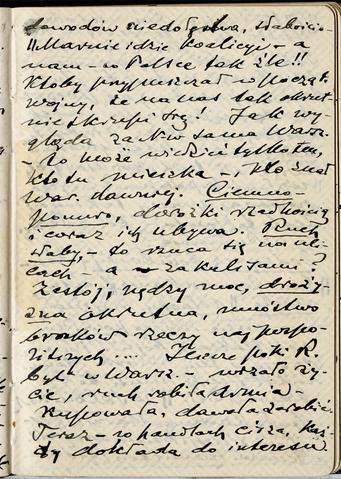 dowodów niedołęstwa, słabości –
!! Marnie idzie koalicyi – a
nam – w Polsce tak źle!!
Ktoby przypuszczał w począt.
wojny, że na nas tak okrut-
nie skrupi się! Jak wy-
gląda zaś w sama Warsz.
– to może widzieć tylko ten,
kto tu mieszka – i kto znał
War. dawniej. Ciemno –
ponuro, dorożki rzadkością
i coraz ich ubywa. Ruch
słaby, – to rzuca się na uli-
cach – a za kulisami?
Zastój, nędzy moc, droży-
zna okrutna, mnóstwo
braków rzeczy najpospo-
litszych ... Jeszcze póki R.
był w Warsz – wrzało ży-
cie, ruch robiła armia –
Kupowała, dawała zarobić.
Teraz – w handlach cisza, każ-
dy dokłada do interesu.